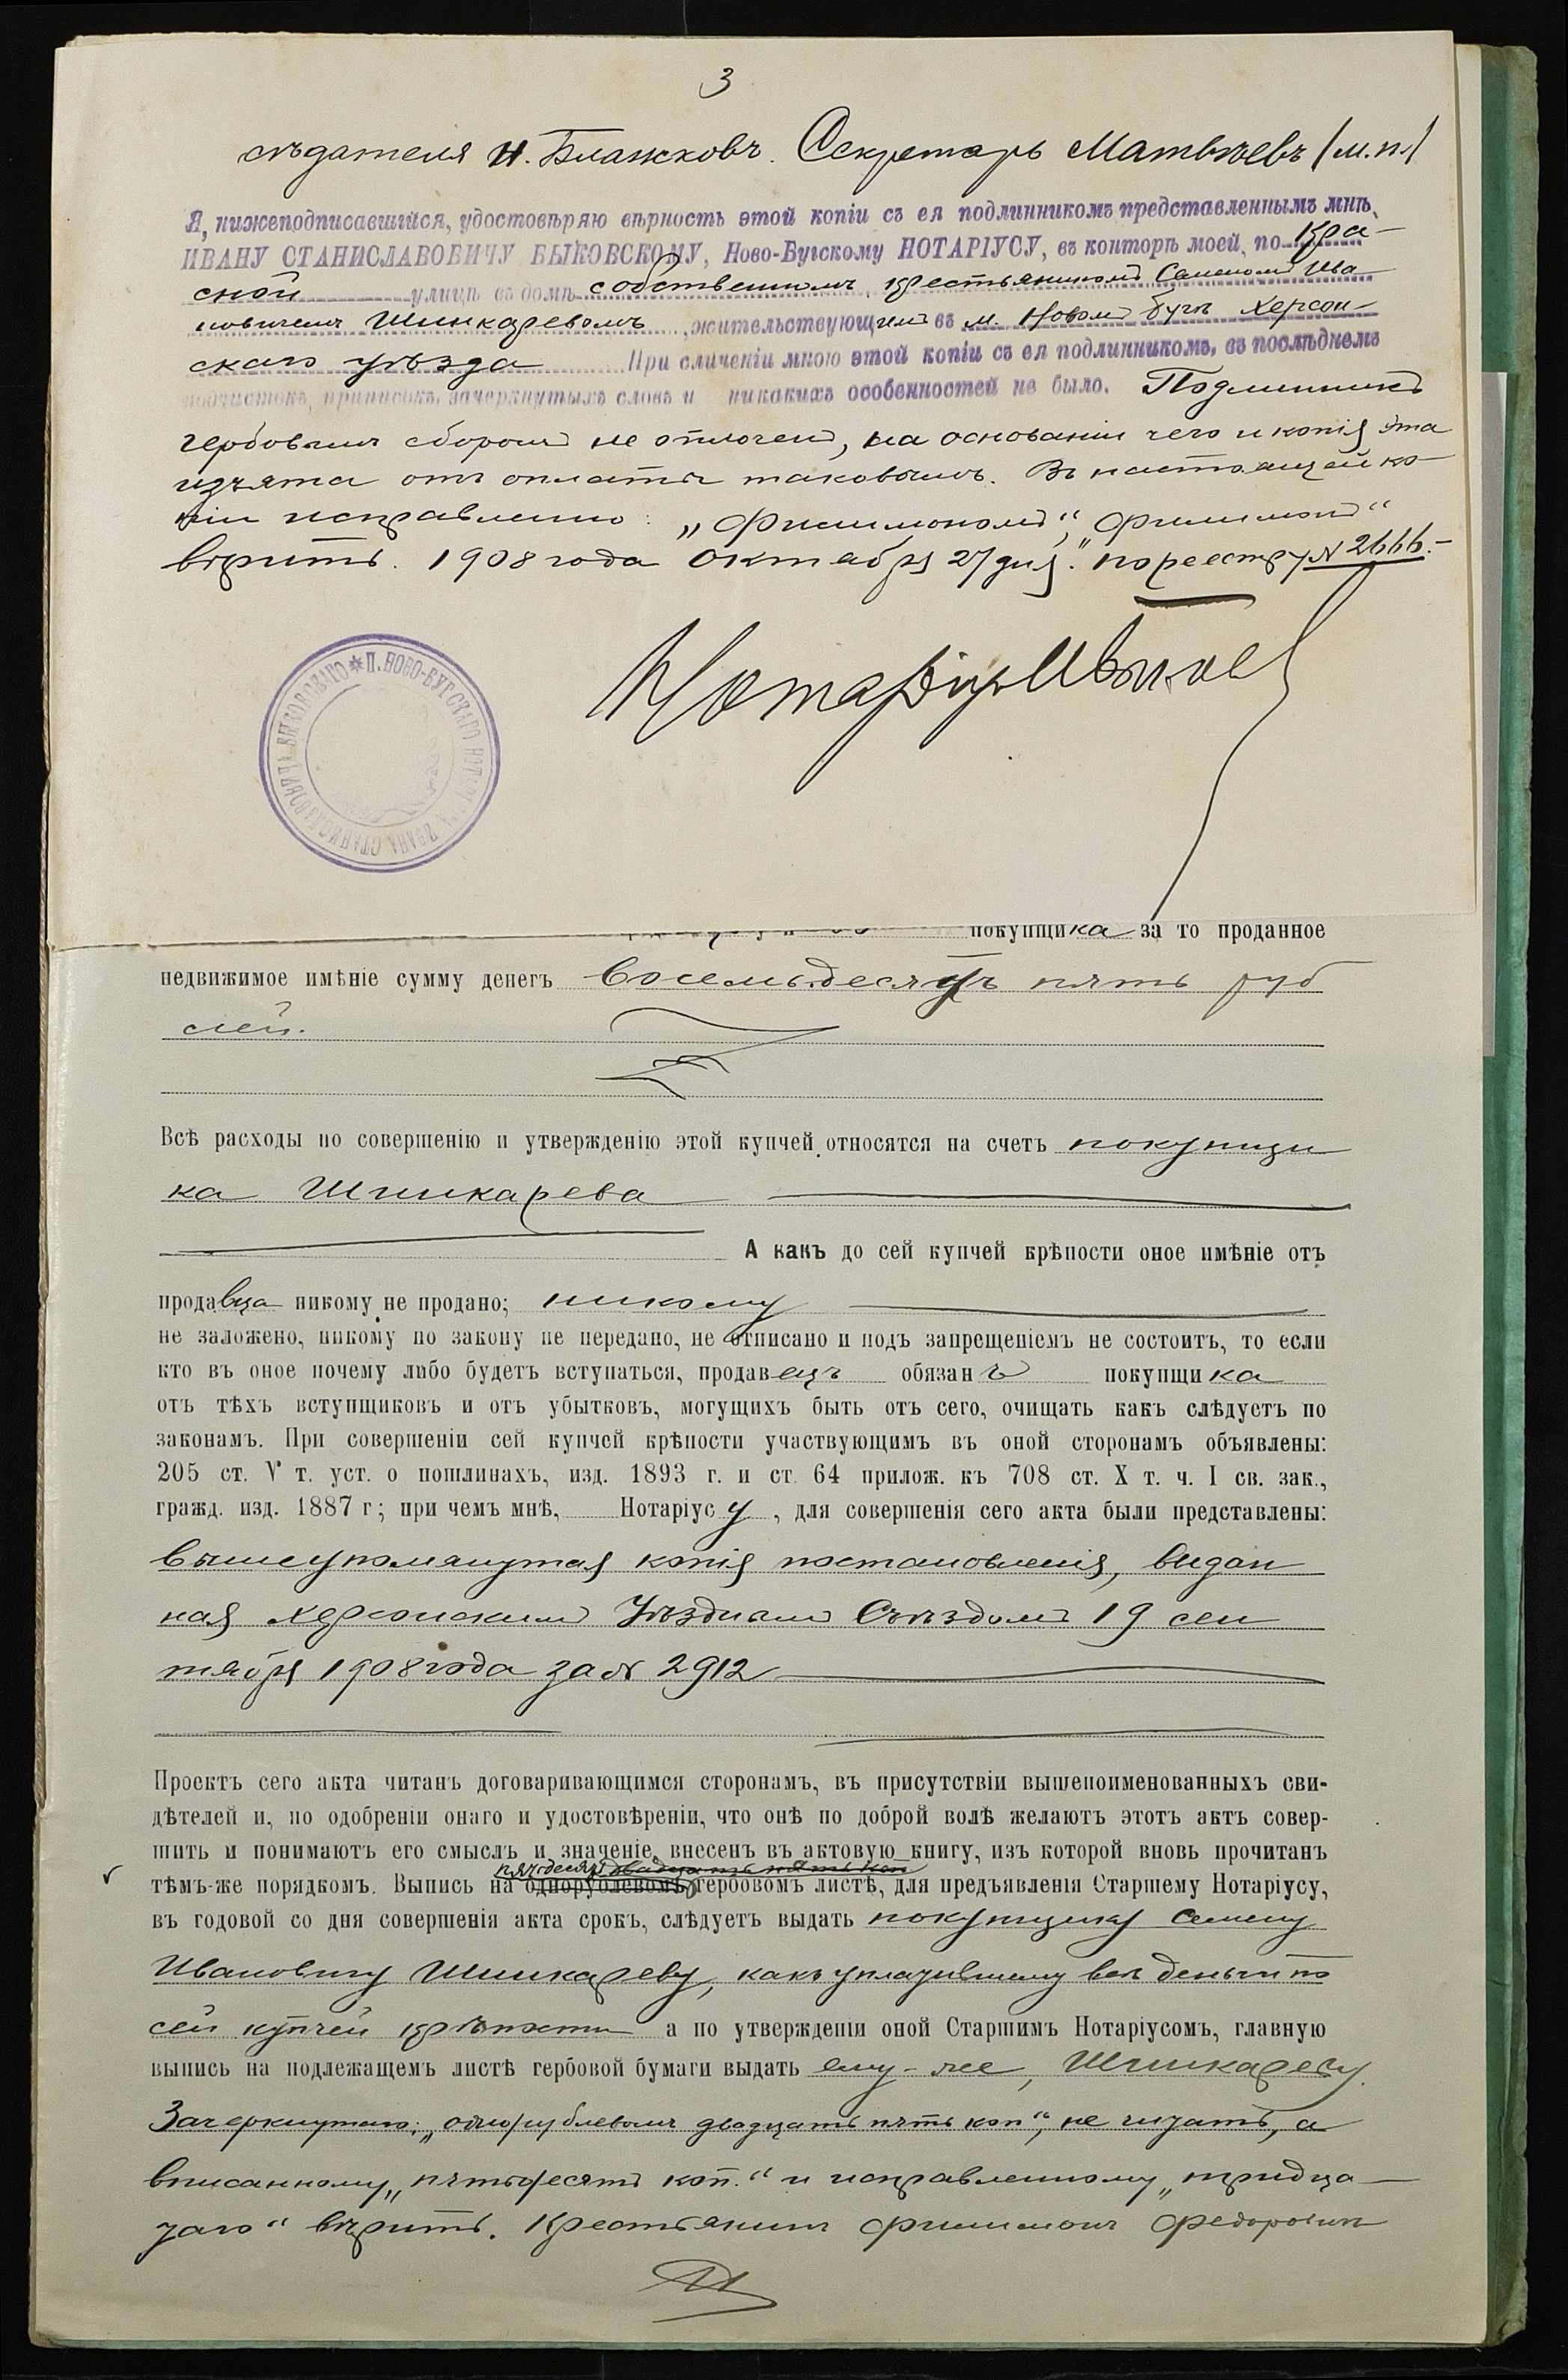 3
сѣдателя И. Блажковъ. Секретарь Матвѣевъ /м.п./
Я, нижеподписавшійся, удостовѣряю вѣрность этой копіи съ ея подлинникомъ, представленнымъ мнѣ,
ИВАНУ СТАНИСЛАВОВИЧУ БЫКОВСКОМУ, Ново-Бугскому НОТАРІУСУ, въ конторѣ моей, по Кра-
сной улицѣ въ домѣ собственномъ, крестьяниномъ Семеномъ Ива
новичемъ Шинкаревомъ, жительствующимъ въ м. Новомъ Бугѣ Херсон-
скаго уѣзда При сличеніи мною этой копіи съ ея подлинникомъ, въ послѣднемъ
подчистокъ, приписокъ, зачеркнутыхъ словъ и никакихъ особенностей не было. Подлинникъ
гербовымъ сборомъ не оплоченъ, на основаніи чего и копія эта
изъята отъ оплаты таковымъ. Въ настоящей ко-
піи исправлено: „Филимономъ", „Филимонъ"
вѣрить. 1908 года Октября 27 дня. по реестру № 2666.-
Нотаріусъ Быков
* П. НОВО-БУГСКАГО НОТАРІУСА ИВАНА СТАНИСЛАВОВИЧА БЫКОВСКАГО
покупщика за то проданное
недвижимое имѣніе сумму денегъ восемьдесятъ пять руб
лей.
Всѣ расходы по совершенію и утвержденію этой купчей относятся на счетъ покупщи
ка Шинкарева
А какъ до сей купчей крѣпости оное имѣніе отъ
продавца никому не продано; никому
не заложено, никому по закону не передано, не отписано и подъ запрещеніемъ не состоитъ, то если
кто въ оное почему либо будетъ вступаться, продавецъ обязанъ покупщика
отъ тѣхъ вступщиковъ и отъ убытковъ, могущихъ быть отъ сего, очищать какъ слѣдуетъ по
законамъ. При совершеніи сей купчей крѣпости участвующимъ въ оной сторонамъ объявлены:
205 ст. V т. уст. о пошлинахъ, изд. 1893 г. и ст. 64 прилож. къ 708 ст. X т. ч. I св. зак.,
гражд. изд. 1887 г; при чемъ мнѣ, Нотаріусу, для совершенія сего акта были представлены:
вышеупомянутая копія постановленія, выдан
ная Херсонскимъ Уѣзднымъ Съѣздомъ 19 сен
тября 1908 года за № 2912
Проектъ сего акта читанъ договаривающимся сторонамъ, въ присутствіи вышепоименованныхъ сви-
дѣтелей и, по одобреніи онаго и удостовѣреніи, что онѣ по доброй волѣ желаютъ этотъ актъ совер-
шить и понимаютъ его смыслъ и значеніе, внесенъ въ актовую книгу, изъ которой вновь прочитанъ
пятьдесятъ двадцать пять коп
тѣмъ-же порядкомъ. Выпись на однорублевомъ гербовомъ листѣ, для предъявленія Старшему Нотаріусу,
въ годовой со дня совершенія акта срокъ, слѣдуетъ выдать покупщику Семену
Ивановичу Шинкареву, какъ уплатившему всѣ деньги по
сей купчей крѣпости а по утвержденіи оной Старшимъ Нотаріусомъ, главную
выпись на подлежащемъ листѣ гербовой бумаги выдать ему-же, Шинкареву.
Зачеркнутаго: „однорублевомъ двадцать пять коп", не читать, а
вписанному „пятьдесятъ коп." и исправленному „тридца-
таго" вѣрить. Крестьянинъ Филимонъ Федоровичъ